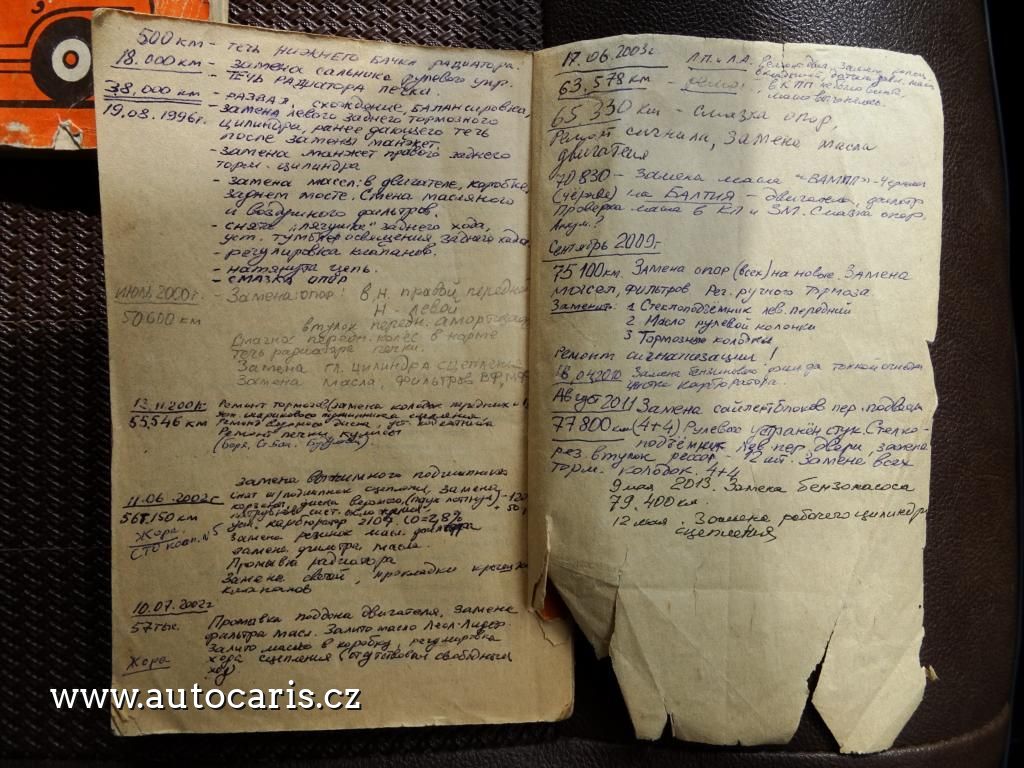 500 км - течь нижнего бачка радиатора.
18.000 км - замена сальника рулевого упр.
- течь радиатора печки.
38,000 км - развал, схождение, балансировка,
19.08.1996г. - замена левого заднего тормозного
цилиндра, ранее дающего течь
после замены манжет.
- замена манжет правого заднего
торм. цилиндра
- замена массел: в двигателе, коробке,
заднем мосте. Смена масляного
и воздушного фильтров.
- снята "лягушка" заднего хода,
уст. тумблер освящения заднего хода
- регулировка клапанов.
- натянута цепь.
- смазка опор
Июль 2000г. - Замена: опор: в.н. правой передней
н - левой
50600 км
втулок передн. амортизат
течь радиатора печки.
Замена гл. цилиндра сцепления
Замена масла, фильтров
13.11.2001г. Ремонт тормозов (замена колодок передних и
55,546 км
Ремонт печки
замена выжимного подшипника
11.06.2002г сцепления, замена
56.150 км
Жора карбюратор 2109 CO=2,8%
СТО кооп. №5 Замена резинок масл.
замена фильтра масла.
Промывка радиатора
Замена свечей, прокладки крышки
клапанов
10.07.2002г
57тыс. Промывка поддона двигателя, замена
фильтра масл. Залито масло
Залито масло в коробку, регулировка
Жора хода сцепления (отутствовал свободный
ход)
17.06.2003г.
63,578 км
65 330 км смазка опор,
Ремонт сигнала, Замена масла
двигателя
70830 - Замена масла "ВАМПЛ"
(чёрное) на БАЛТИЯ - двигатель, фильтр
Проверка масла в КП и ЗМ. Смазка опор.
Сентябрь 2009г
75100км. Замена опор (всех) на новые. Замена
масел, фильтров Рег. ручного тормоза.
Заменить: 1 Стеклоподъёмник лев. передний
2 Масло рулевой колонки
3 Тормозные колодки
Ремонт сигнализации!
18.04.2010 Замена бензинового
карбюратора.
Август 2011 Замена сайлентблоков пер. подвески
77800км (4+4) Рулевое устранён стук. Стекло-
подъёмник лев. пер. двери, замена
рез. втулок рессор - 12 шт. Замена всех
торм. колодок. 4+4
9 мая 2013. Замена бензонасоса
79.400 км.
12 мая. Замена рабочего цилиндра
сцепления
www.autocaris.cz